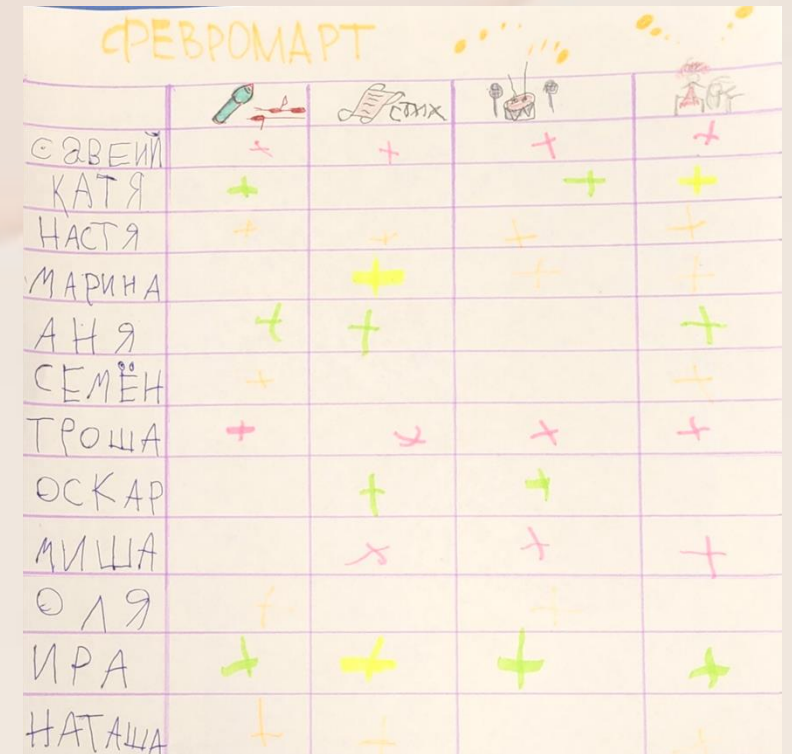 ФЕВРОМАРТ
СТИХ
САВЕИЙ
КАТЯ
НАСТЯ
МАРИНА
АНЯ
СЕМЁН
ТРОША
ОСКАР
МИША
ОЛЯ
ИРА
НАТАША